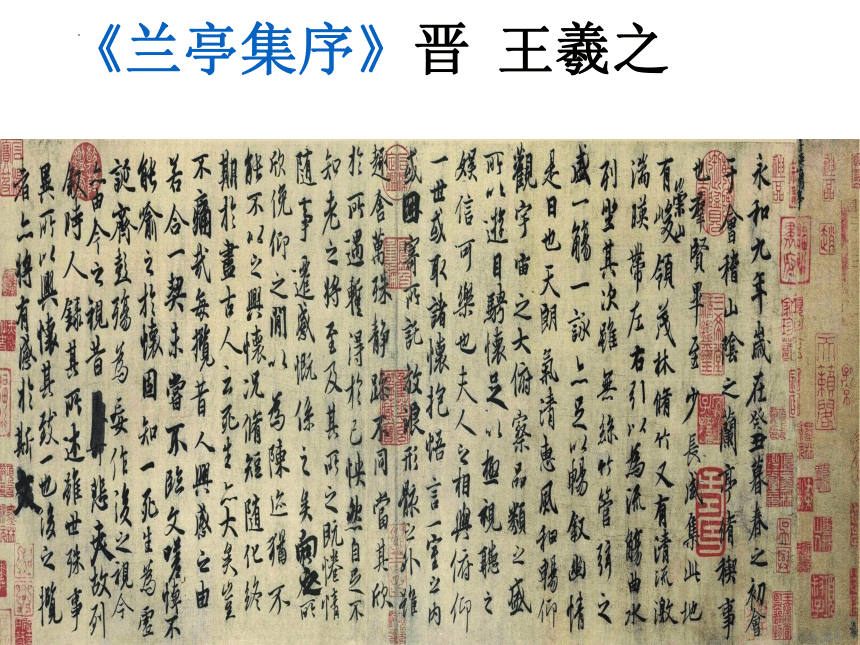 《兰亭集序》晋 王羲之
永和九年歲在癸丑暮春之初會
于會稽山陰之蘭亭脩稧事
也群賢畢至少長咸集此地
有崇山峻領茂林脩竹又有清流激
湍暎帶左右引以為流觴曲水
列坐其次雖無絲竹管弦之
盛一觴一詠亦足以暢敘幽情
是日也天朗氣清惠風和暢仰
觀宇宙之大俯察品類之盛
所以遊目騁懷足以極視聽之
娛信可樂也夫人之相與俯仰
一世或取諸懷抱悟言一室之內
或因寄所託放浪形骸之外雖
趣舍萬殊靜躁不同當其欣
於所遇暫得於己怏然自足不
知老之將至及其所之既惓情
隨事遷感慨係之矣向之所
欣俛仰之閒以為陳迹猶不
能不以之興懷況脩短隨化終
期於盡古人云死生亦大矣豈
不痛哉每攬昔人興感之由
若合一契未嘗不臨文嗟悼不
能喻之於懷固知一死生為虛
誕齊彭殤為妄作後之視今
亦由今之視昔悲夫故列
敘時人錄其所述雖世殊事
異所以興懷其致一也後之攬
者亦將有感於斯文
天籟閣